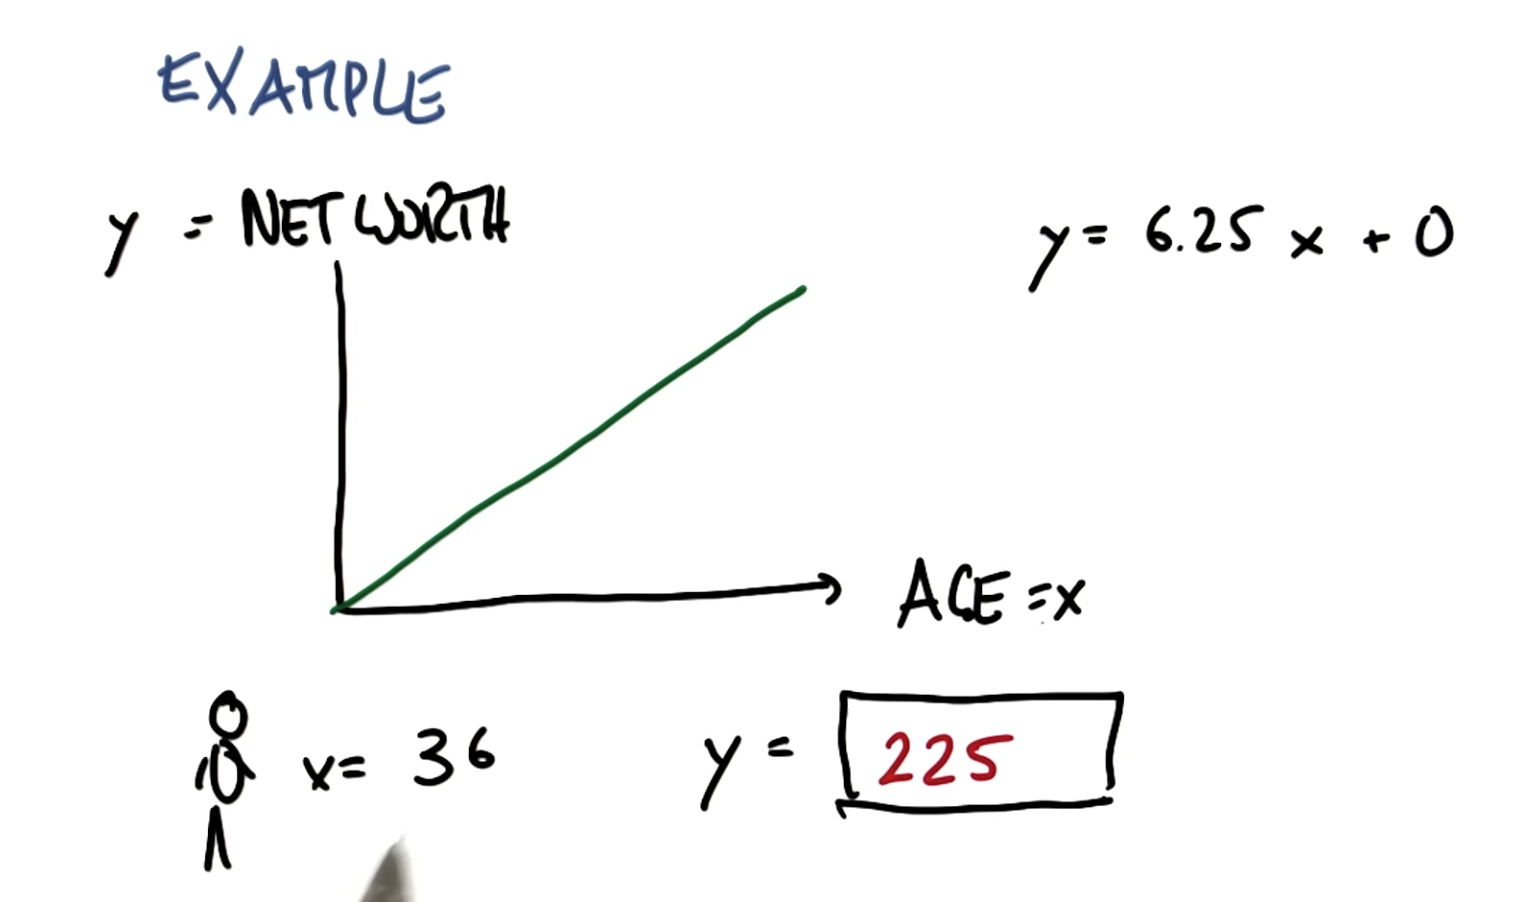 EXAMPLE
y = NET WORTH
y = 6.25 x + 0
AGE = x
x = 36
y = 225